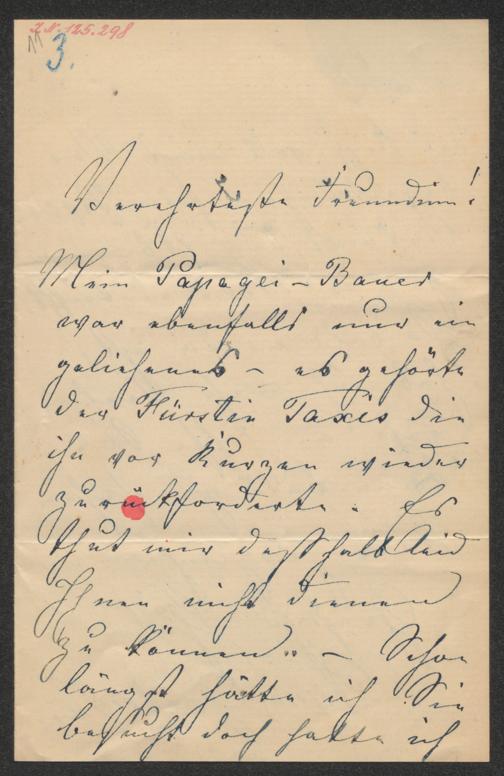 I.N. 125.298
3.
Verehrteste Freundinn!
Mein Papagei-Bauer
war ebenfalls nur ein
geliehenes – es gehörte
der Fürstin Taxis die
ihn vor Kurzen wieder
zurückforderte. Es
thut mir deßhalb leid
Ihnen nicht dienen
zu können. – Schon
längst hätte ich Sie
besucht doch hatte ich